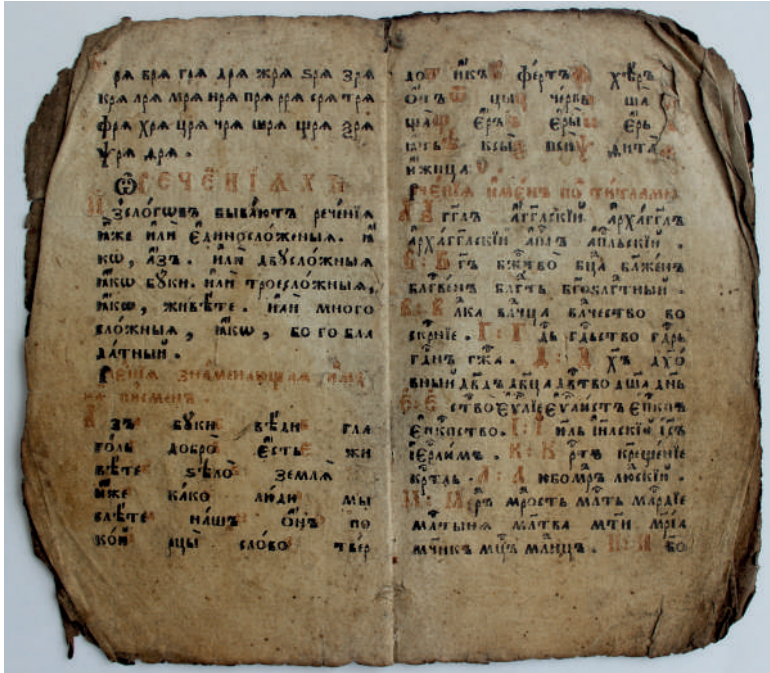 рѧ врѧ грѧ дрѧ жрѧ ѕрѧ зрѧ
крѧ лрѧ мрѧ нрѧ прѧ ррѧ срѧ трѧ
фрѧ хрѧ црѧ чрѧ шрѧ щрѧ ѯрѧ
ѱрѧ ѳрѧ .
Ѿ РЕЧЕ́НЇѦХЪ
И҆зсло́гѡвъ быва́ютъ рече́нїѧ
и҆́же и҆лѝ є҆диносло́женыѧ. ꙗ҆́
кѡ , а҆́зъ . и҆лѝ двꙋсло́жныѧ
ꙗ҆́кѡ бꙋ́ки. и҆лѝ тросло́жныѧ,
ꙗ҆́кѡ , живѣ́те . и҆лѝ много
сло́жныѧ , ꙗ҆́кѡ , бо го бла
да́тный .
Рече́нїѧ знаменающаѧ и҆мена̀
писменъ .
А҆зъ бꙋ́ки вѣ́ди гла
го́ль добро̀ є҆́сть жи
вѣ́те ѕѣло̀ землѧ̀
и҆́же ка́ко лю́ди мы
слѣ́те на́шъ о҆́нъ по
ко́й рцы̀ сло́во твер
до и҆́къ фе́ртъ хѣ́ръ
о҆́нъ ѿ цы̀ че́рвь ша̀
ща̀ є҆́ръ є҆ры̀ є҆́рь
ꙗ҆ть ксѝ псѝ ѳита̀
и҆́жица .
Рече́нїѧ и҆ме́нъ по ти́тламъ
А : А҆́гг҃лъ а҆́гг҃лскїй а҆рха́гг҃лъ
а҆рха́гг҃лскїй а҆п҃лъ а҆п҃льскїй .
Б : Бг҃ъ бж҃тво̀ бц҃а бл҃же́нъ
бл҃гве́нъ бл҃гть бг҃обл҃гтный .
В : Влⷣка влⷣчца влⷣчество во
скр҃нїе . Г : Гдⷭ҇ь гдⷭ҇ьство гдⷭ҇рь
гдⷭ҇нъ гж҃а . Д : Дх҃ъ дх҃о́
вный дв҃дъ дв҃ца дв҃тво дш҃а дн҃ь
Є҆ : Є҆ство є҆ѵ҃лїе є҆ѵ҃листъ є҆пк҃пъ
є҆пк҃пство . І҆ : І҆и҃ль і҆и҃лскїй і҆с҃ъ
і҆єрⷭ҇ли́мъ . К : Крⷭ҇тъ крⷭ҇ще́нїе
крⷭ҇тль . Л : Любомрⷣъ люⷣскїй .
М : Мⷣръ мⷣрость млⷭ҇ть млⷭ҇рдїе
мл҃тва мт҃и мр҃їа
мч҃нкъ мцⷭ҇ъ млⷣнцъ . Н : Нб҃о